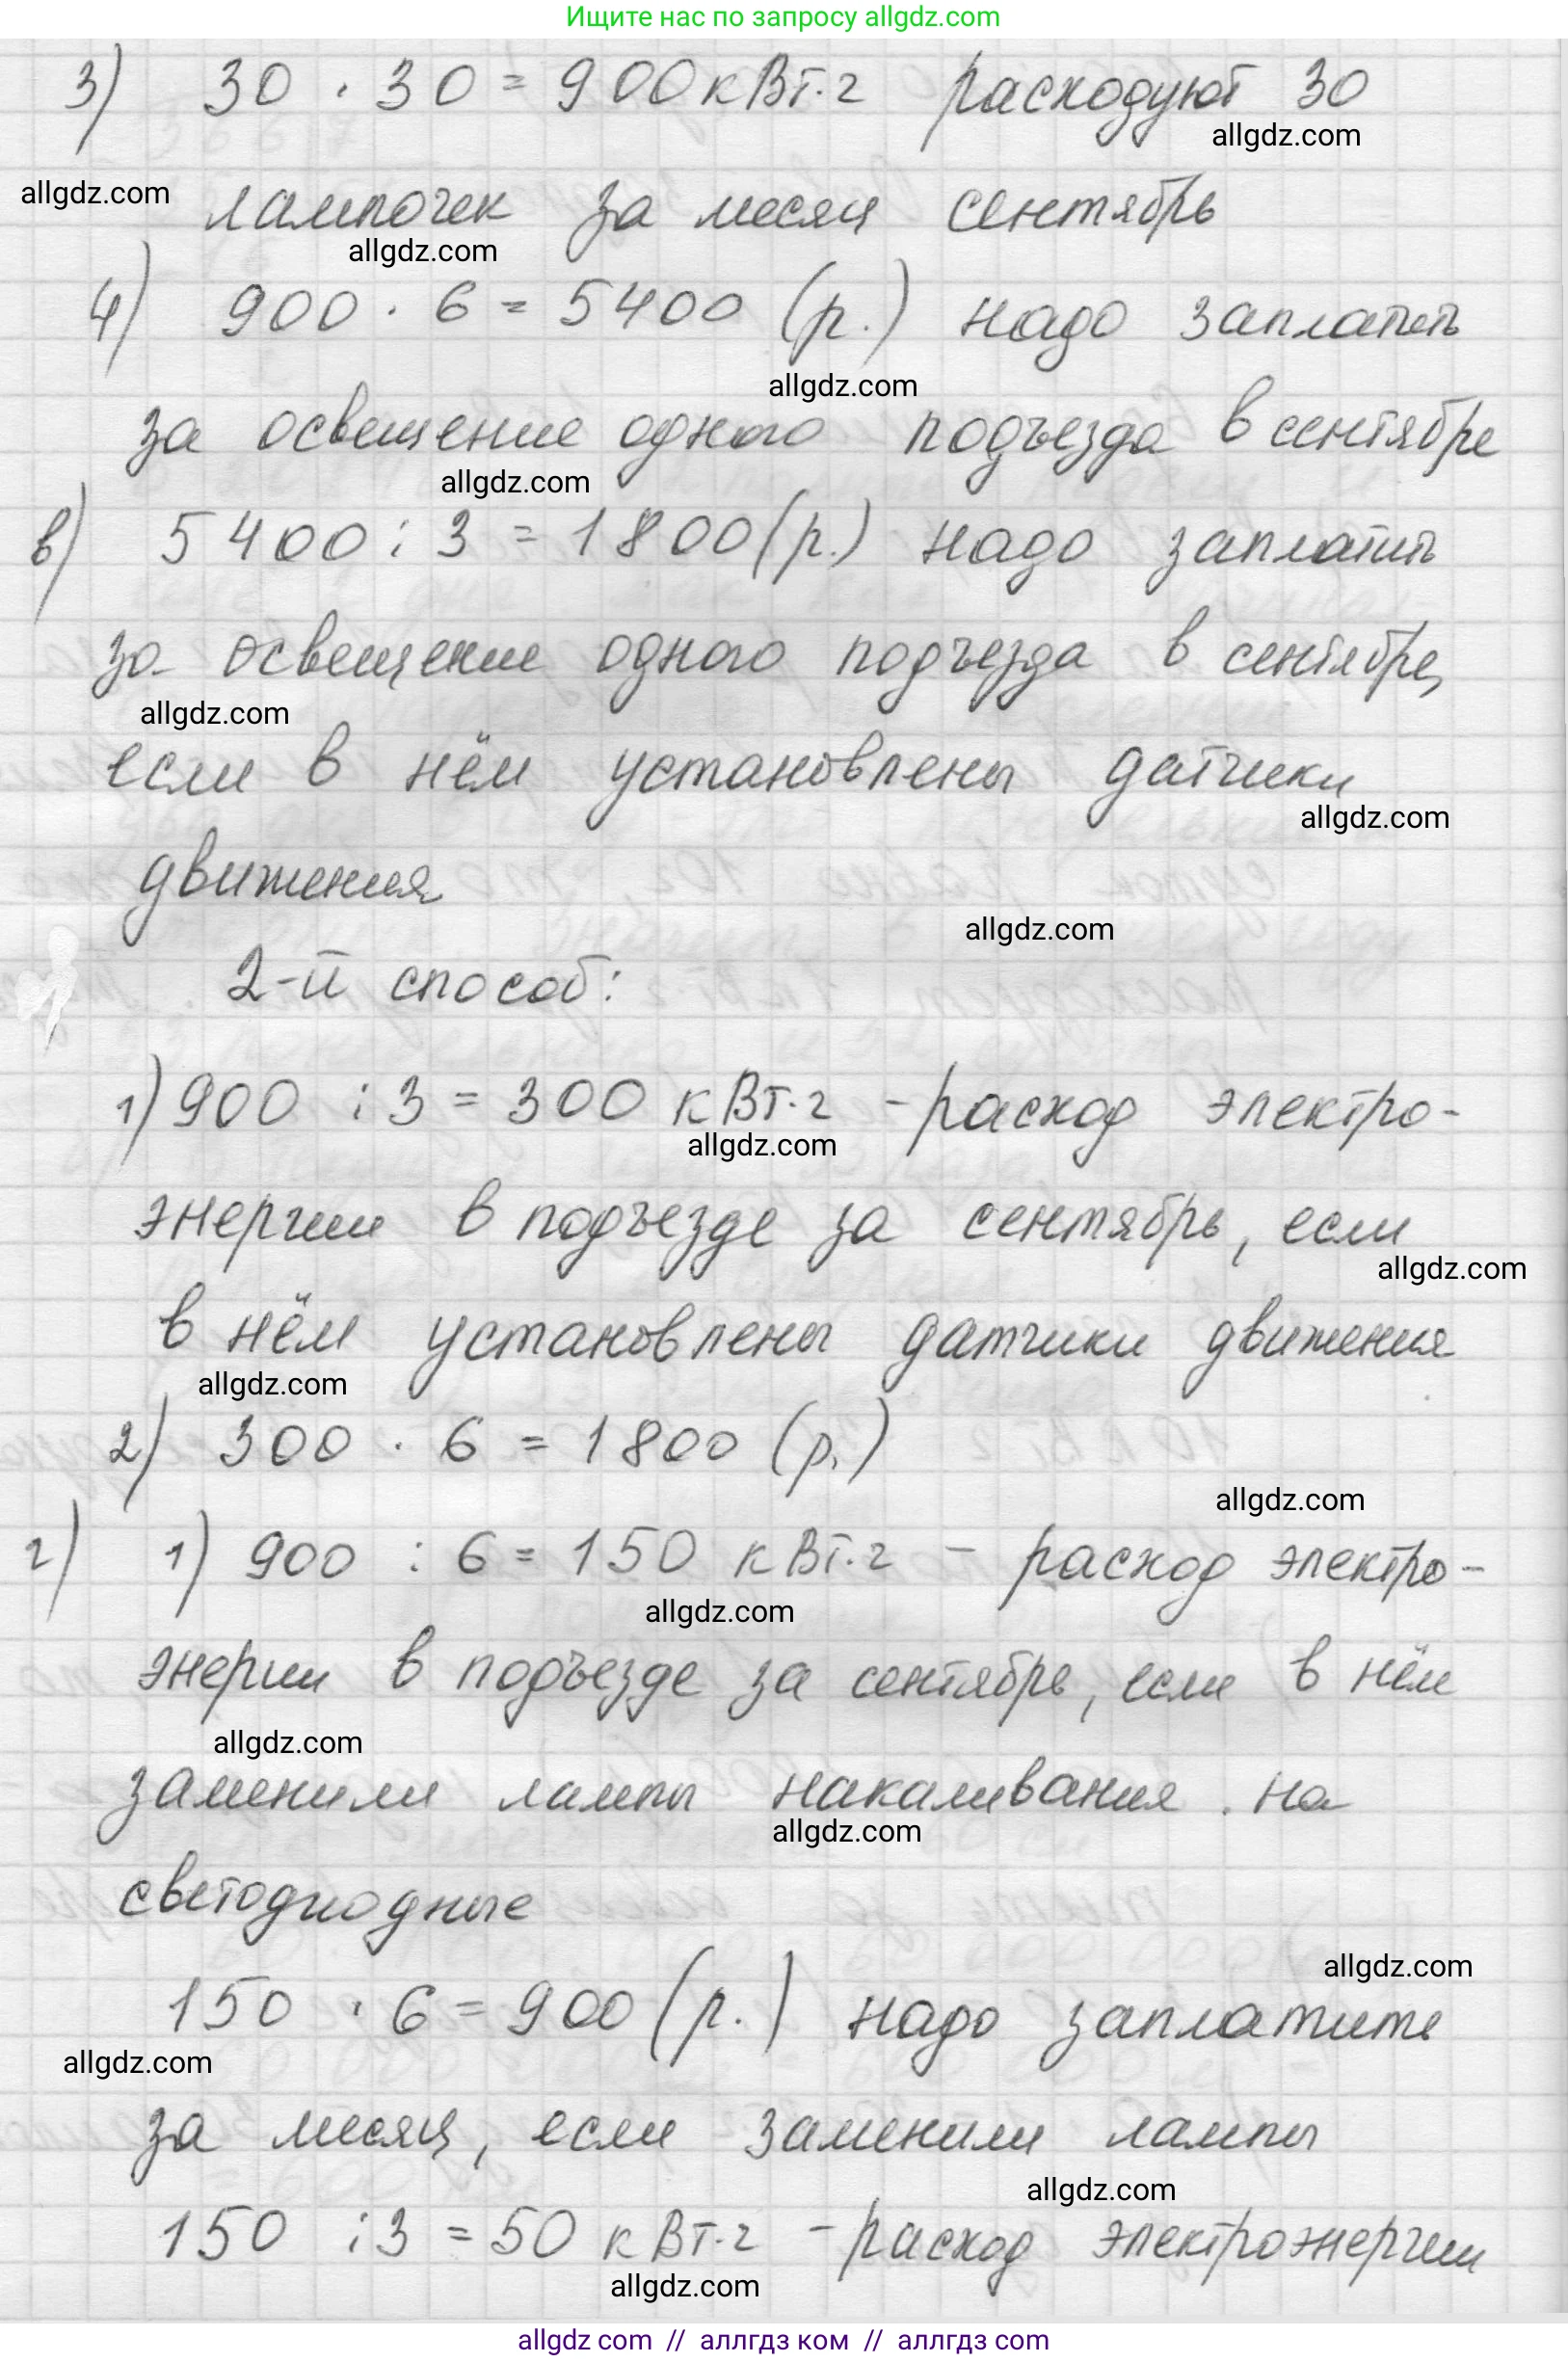 Ищите нас по запросу allgdz.com
3) 30 · 30 = 900 кВт·г расходуют 30
allgdz.com
allgdz.com
лампочек за месяц сентябрь
allgdz.com
4) 900 · 6 = 5400 (р.) надо заплатить
allgdz.com
за освещение одного подъезда в сентябре
allgdz.com
в) 5400 : 3 = 1800 (р.) надо заплатить
за освещение одного подъезда в сентябре,
allgdz.com
если в нём установлены датчики
allgdz.com
движения
allgdz.com
2-й способ:
1) 900 : 3 = 300 кВт·г - расход электро-
allgdz.com
энергии в подъезде за сентябрь, если
allgdz.com
в нём установлены датчики движения
allgdz.com
2) 300 · 6 = 1800 (р.)
allgdz.com
г) 1) 900 : 6 = 150 кВт·г - расход электро-
allgdz.com
энергии в подъезде за сентябрь, если в нём
allgdz.com
заменили лампы накаливания на
allgdz.com
светодиодные
allgdz.com
150 · 6 = 900 (р.) надо заплатить
allgdz.com
за месяц, если заменили лампы
allgdz.com
150 : 3 = 50 кВт·г - расход электроэнергии
allgdz.com
allgdz com // аллгдз ком // аллгдз com